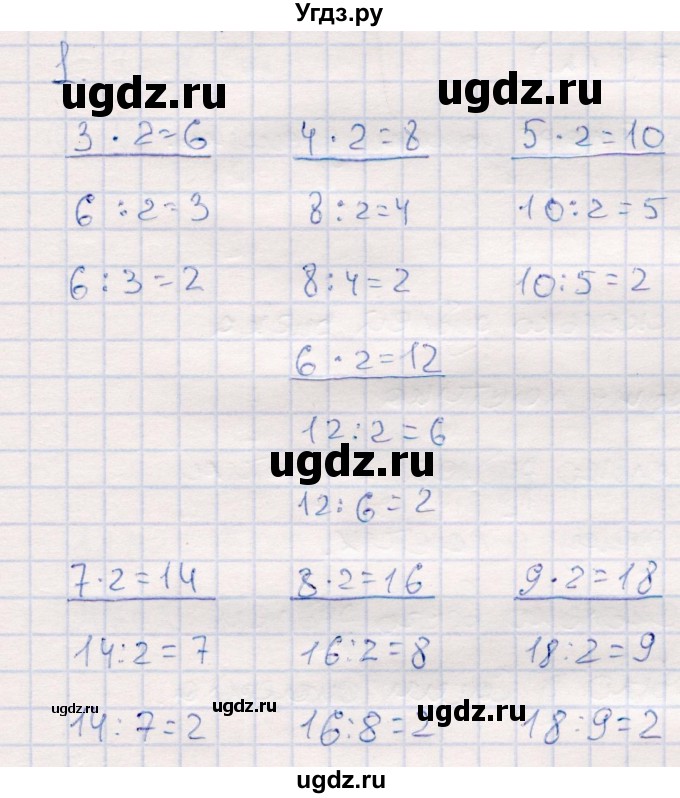 Угдз.ру
1.
ugdz.ru ugdz.ru
3 · 2 = 6 4 · 2 = 8 5 · 2 = 10
6 : 2 = 3 8 : 2 = 4 10 : 2 = 5
6 : 3 = 2 8 : 4 = 2 10 : 5 = 2
6 · 2 = 12
12 : 2 = 6
ugdz.ru
12 : 6 = 2
7 · 2 = 14 8 · 2 = 16 9 · 2 = 18
14 : 2 = 7 16 : 2 = 8 18 : 2 = 9
ugdz.ru ugdz.ru ugdz.ru
14 : 7 = 2 16 : 8 = 2 18 : 9 = 2
ugdz.ru